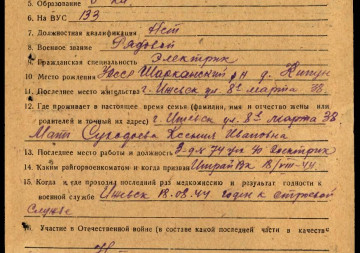 5. Образование 6 кл.
6. На ВУС 133
7. Должностная квалификация Нет
8. Военное звание Рядовой
9. Гражданская специальность электрик
10. Место рождения Шарканский р-н д.
11. Последнее место жительства г. Ижевск ул. 8го марта 38.
12. Где проживает в настоящее время семья (фамилия, имя и отчество жены или
родителей и точный их адрес) г. Ижевск ул. 8го марта 38
Мать Суходоева Ксения Ивановна
13. Последнее место работы и должность з-д 74 цех 40 электрик
14. Каким райгорвоенкоматом и когда призван 18/VIII-44.
15. Когда и где проходил последний раз медкомиссию и результат годности к
военной службе Ижевск 18.08.44 годен к строевой
службе
16. Участие в Отечественной войне (в составе какой последней части в качестве